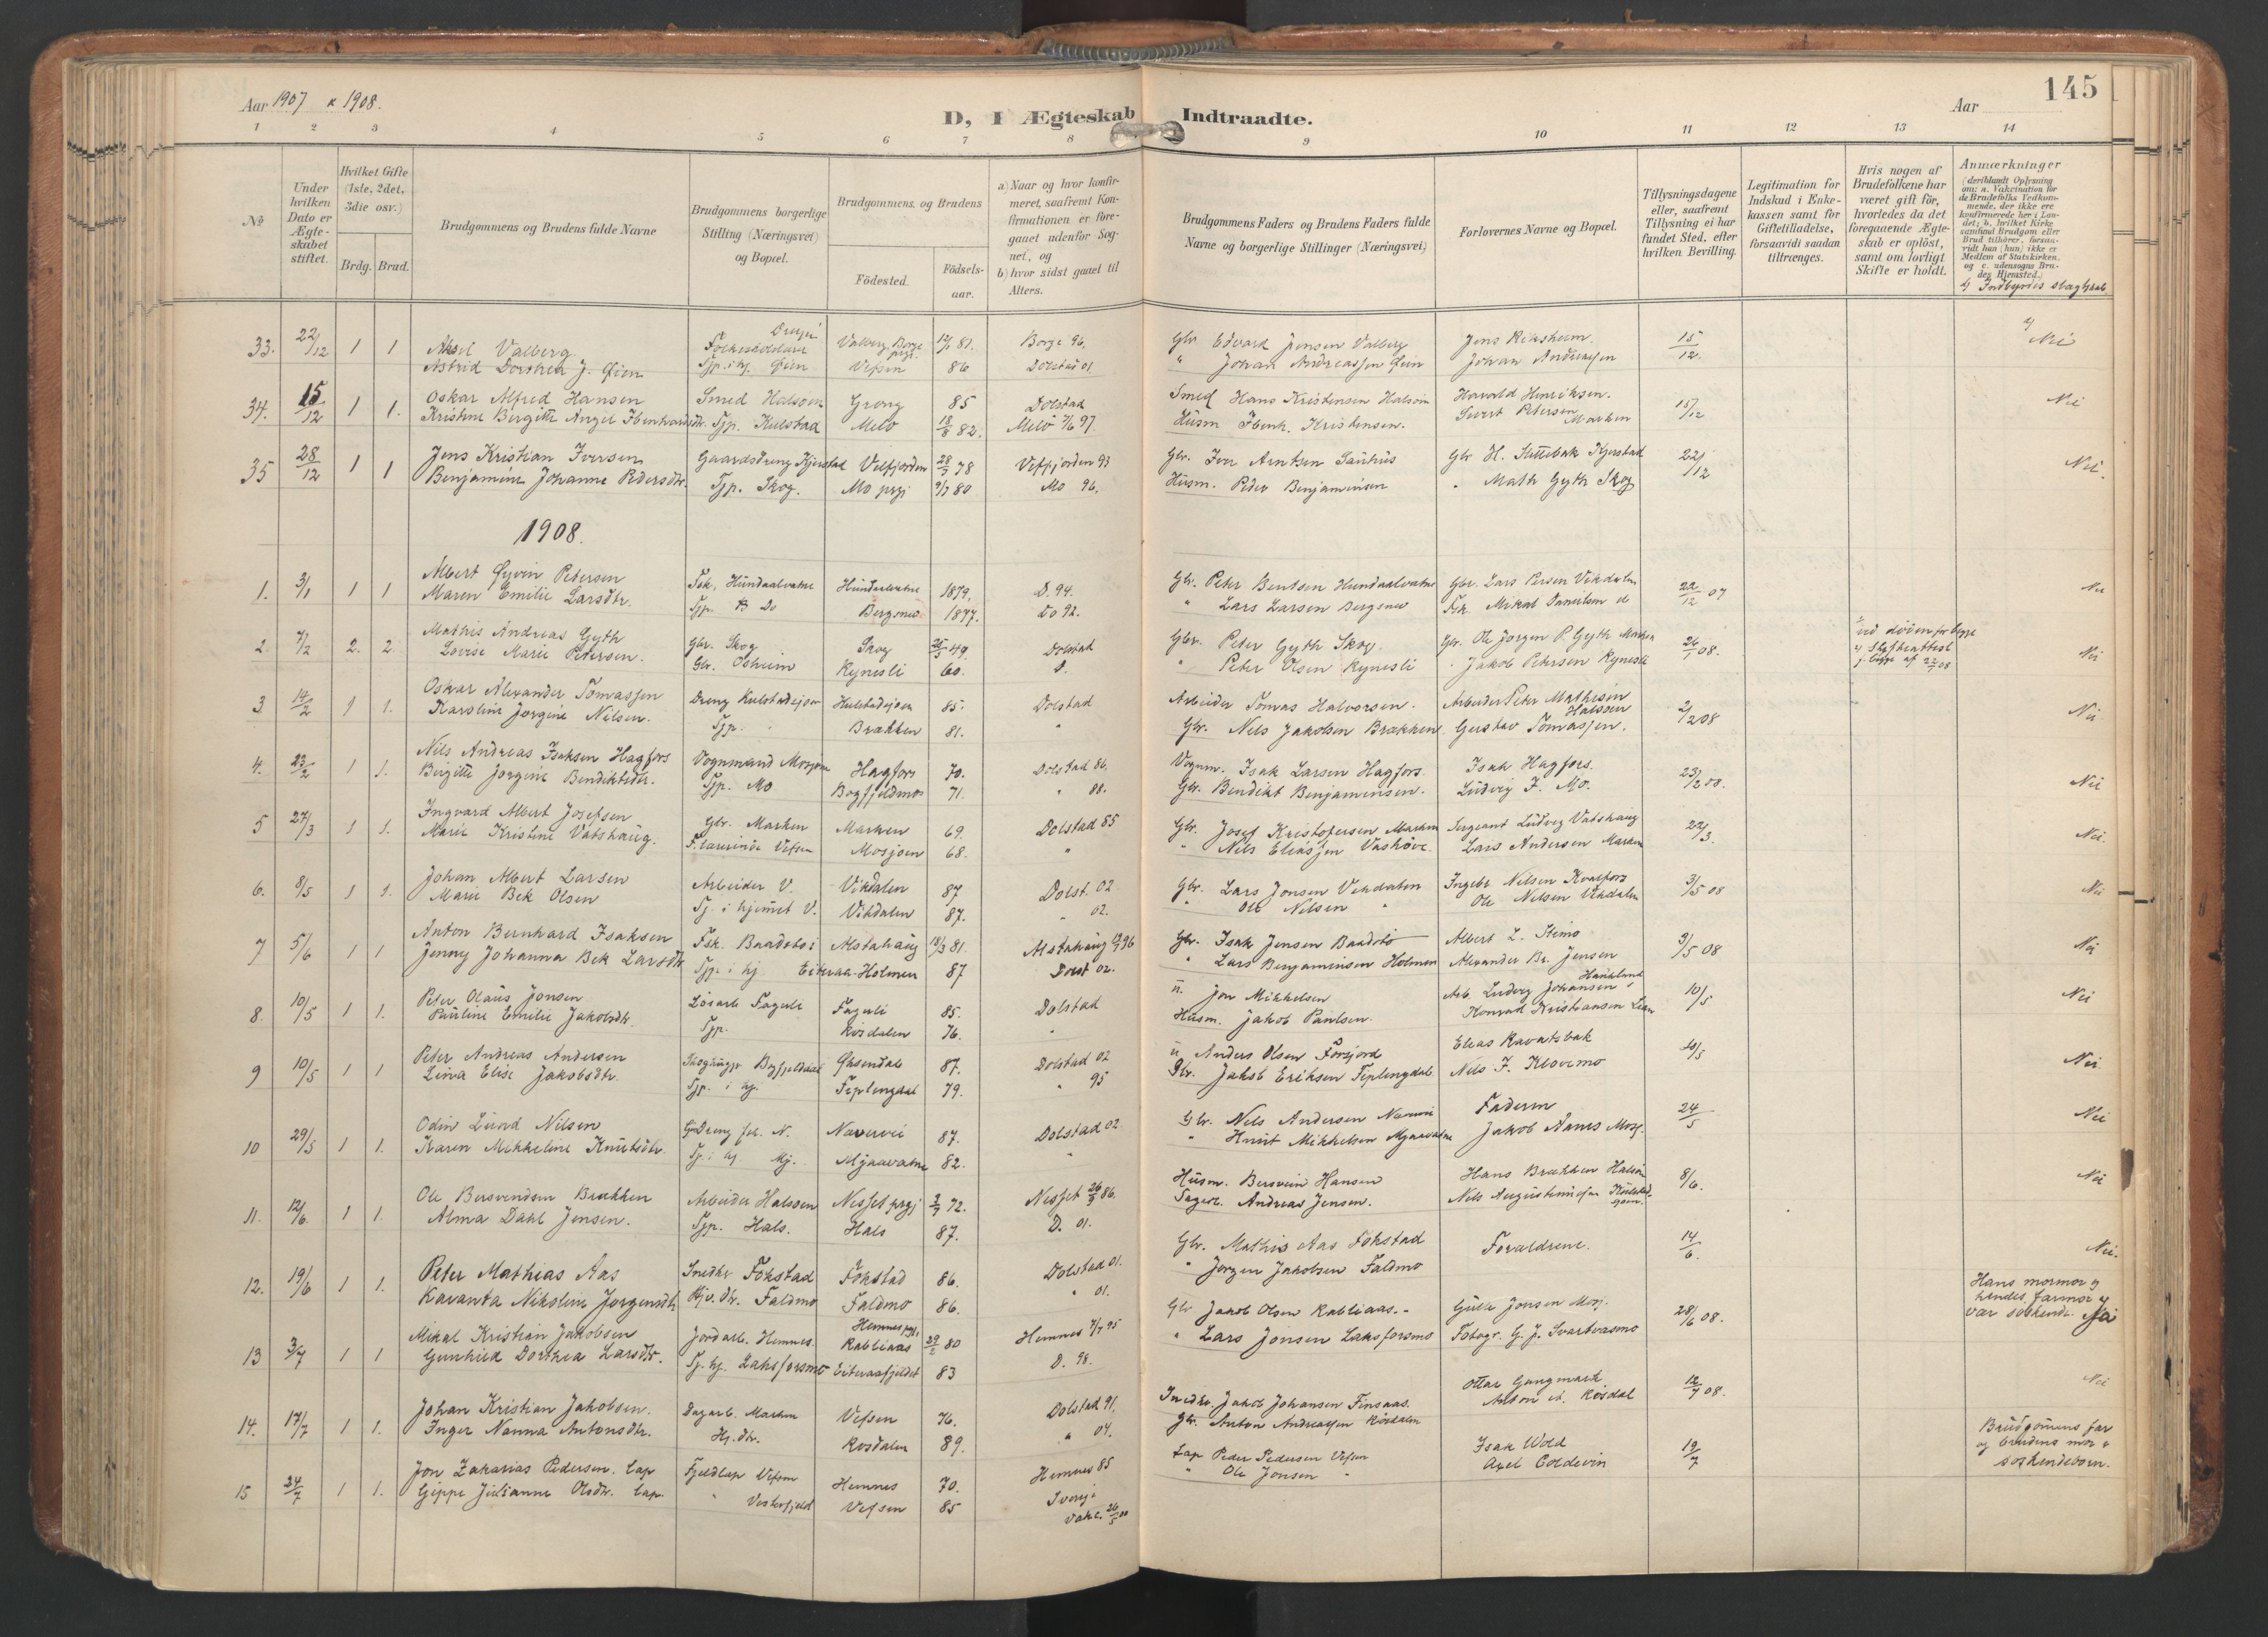 Aar 1907 & 1908.
D, I Ægteskab Indtraadte.
Aar
145
1 2 3 4 5 6 7 8 9 10 11 12 13 14
No
Under hvilken Dato er Ægteskabet stiftet.
Hvilket Gifte (1ste, 2det, 3die osv.)
Brdg. Brud.
Brudgommens og Brudens fulde Navne
Brudgommens borgerlige Stilling (Næringsvei) og Bopæl.
Brudgommens og Brudens
Födested. Födselsaar.
a) Naar og hvor konfirmeret, saafremt Konfirmationen er foregaaet udenfor Sognet, og
b) hvor sidst gaaet til Alters.
Brudgommens Faders og Brudens Faders fulde Navne og borgerlige Stillinger (Næringsvei)
Forlovernes Navne og Bopæl.
Tillysningsdagene eller, saafremt Tillysning ei har fundet Sted, efter hvilken Bevilling.
Legitimation for Indskud i Enkekassen samt for Giftetilladelse, forsaavidt saadan tiltrænges.
Hvis nogen af Brudefolkene har været gift för, hvorledes da det foregaaende Ægteskab er oplöst, samt om lovligt Skifte er holdt.
Anmærkninger (deriblandt Oplysning om: a. Vakcination for de Brudefolks Vedkommende, der ikke ere konfirmerede her i Landet; b. hvilket Kirkesamfund Brudgom eller Brud tilhörer, forsaavidt han (hun) ikke er Medlem af Statskirken, og c. udensogns Brudes Hjemsted.)
33. 22/12 1 1 Aksel Valberg Valberg, Borge 81. Borge 96. Gbr Edvard Jensen Valberg 15/12. Nei
Astrid Dorthea J. Øien Tjp. i hj. Øien Vefsen 86 Dolstad 01 " Johan Andreassen Øien Johan Andreassen
34. 15/12 1 1. Oskar Alfred Hansen Smed Halsøen Grong 85 Dolstad Smed Hans Kristensen Halsøen Harald Henriksen. 15/12 Nei
Tjp. Kulstad Melö 18/8 82. Melö 97. Husm Kristensen. Sivert Petersen Marken
35 28/12 1 1 Jens Kristian Iversen Gaardsdreng Kjerstad Velfjorden 78 Velfjorden 93 Gbr. Iver Arntsen Gbr H. Kjerstad 22/12 Nei.
Benjamine Johanne Pedersdtr. Tjp. Skog. Mo prgj 80 Mo 96. Husm. Peder Benjaminsen " Math Gyth Skog
1908.
1. 3/1 1 1 Albert Øyvin Petersen Fsk. Hundaalvatne Hundaalvatne 1879. D. 94. Gbr. Peter Bentsen Hundaalvatne Gbr. Lars Persen Vikdalen 22/12 07 Nei
Maren Emilie Larsdtr. Tjp. Do Bergsnev 1877. Do 92. " Lars Larsen Bergsnev Fsk. Mikal Danielsen
2. 7/2 2. 2. Mathis Andreas Gyth Gbr. Skog Skog 49. Dolstad Gbr. Peter Gyth Skog. Gbr. Ole Jørgen P. Gyth Marken 26/1 08. ved döden for begge Nei
Lovise Marie Petersen. Gbr. Osheim Rynesli 60. D. " Peter Olsen Rynesli " Jakob Petersen Rynesli
3 14/2 1 1. Oskar Alexander Tomassen Dreng Kulstadsjøen Kulstadsjøen 85. Dolstad Arbeider Tomas Halvorsen. Arbeider Peter Mathisen Halsøen 2/2 08 Nei
Karoline Jørgine Nilsen. Tjp. Brækken 81. " Gbr. Nils Jakobsen Brækken Gustav Tomassen.
4. 23/2 1 1. Nils Andreas Isaksen Hagfors Vognmand Mosjøen Hagfors 70. Dolstad 86. Vognm. Isak Larsen Hagfors. Isak Hagfors. 23/2 08. Nei
Birgitte Jørgine Bendiktsdtr. Tjp. Mo Bogfjeldmo 71. " 88. Gbr. Bendikt Benjaminsen. Ludvig J. Mo.
5 27/3 1 1. Ingvard Albert Josefsen Gbr. Marken Marken 69. Dolstad 85 Gbr. Josef Kristofersen Marken Sergeant Ludvig Vatshaug 22/3. Nei.
Marie Kristine Vatshaug. F. lærerinde Vefsen Mosjøen 68. " " Nils Eliassen Lars Andersen Marken
6. 8/5 1 1. Johan Albert Larsen Arbeider V. Vikdalen 87 Dolst. 02 Gbr. Lars Jonsen Vikdalen Ingebr Nilsen Kvalfors 3/5 08 Nei
Marie Bek Olsen Tj. i hjemmet V. Vikdalen 87. " 02. " Ole Nilsen " Ole Nilsen Vikdalen
7 5/6 1 1 Anton Bernhard Isaksen Fsk. Baadstø Alstahaug 18/3 81. Alstahaug 96 Gbr. Isak Jensen Baadstø Albert L. Stimo 3/5 08 Nei
Jenny Johanna Bek Larsdtr Tjp. i hj Eiteraa-Holmen 87 Dolst 02. " Lars Benjaminsen Holmen Alexander Br. Jensen
8. 10/5 1 1. Peter Olaus Jonsen Løsarb Fagerli Fagerli 85. Dolstad Jon Mikkelsen Arb. Ludvig Johansen 10/5 Nei
Pauline Emilie Jakobsdtr. Tjp. Rosdalen 76. " Husm. Jakob Paulsen. Konrad Kristiansen
9 10/5 1 1 Peter Andreas Andersen Øksendal 87. Dolstad 02 Anders Olsen Forsjord Elias Ravatsbak 10/5 Nei
Lina Elise Jakobsdtr. Tjp. i hj. Teplingdal 79. " 95 Gbr. Jakob Eriksen Teplingdal Nils J. Klovimo
10 29/5 1 1. Odin Nilsen Navervei 87. Dolstad 02. Gbr. Nils Andersen Faderen 24/5 Nei
Karen Mikkeline Knutsdtr. Tj. i hj Mj. Mjaavatne 82. " " Knut Mikkelsen Mjaavatne Jakob Aanes Mosj.
11. 12/6. 1 1. Ole Bersvendsen Brækken Arbeider Halsøen Nesset prgj 72. Nesset 86. Husm. Bersvein Hansen Hans Brækken Halsøen 8/6. Nei
Alma Dahl Jensen. Tjp. Hals. Hals 87. D. 01. Andreas Jensen. Nils Augustinussen
12. 19/6 1 1. Peter Mathias Aas Fokstad Fokstad 86. Dolstad 01. Gbr. Mathis Aas Fokstad Forældrene. 14/6. Nei.
Ravanta Nikoline Jørgensdtr Hjv. dtr. Faldmo Faldmo 86. " 01. " Jørgen Jakobsen Faldmo
13 3/7 1 1 Mikal Kristian Jakobsen Jordarb. Hemnes. Hemnes prgj. Rabliaas 80 Hemnes 95 Gbr Jakob Olsen Rabliaas. Jonsen Mosj. 28/6 08. Hans mormor og hendes farmor var søskende. Ja
Gunhild Dorthea Larsdtr. Tj. hj. Laksforsmo Eiteraafjeldet 83 D. 98. " Lars Jonsen Laksforsmo Fotogr. G. J. Svartvasmo
14. 17/7 1 1. Johan Kristian Jakobsen. Dagarb. Marken Vefsen 76. Dolstad 91. Jakob Johansen Finsaas. Ottar Gangmark 12/7 08. Nei
Inger Nanna Antonsdtr. Hj. dtr. Rosdalen 89. " 04. Gbr. Anton Andreassen Rosdalen Anton A. Rosdal
15 24/7 1 1. Jon Zakarias Pedersen. Lap Fjeldlap Vefsen Hemnes 70. Hemnes 85 Lap Peder Pedersen Vefsen Isak Wold 19/7 Brudgomens far og brudens mor er søskendebørn.
Julianne Olsdtr. Lap " Vesterfjeld Vefsen 85 Sverige Vakc. " Ole Jonsen " Axel Coldevin